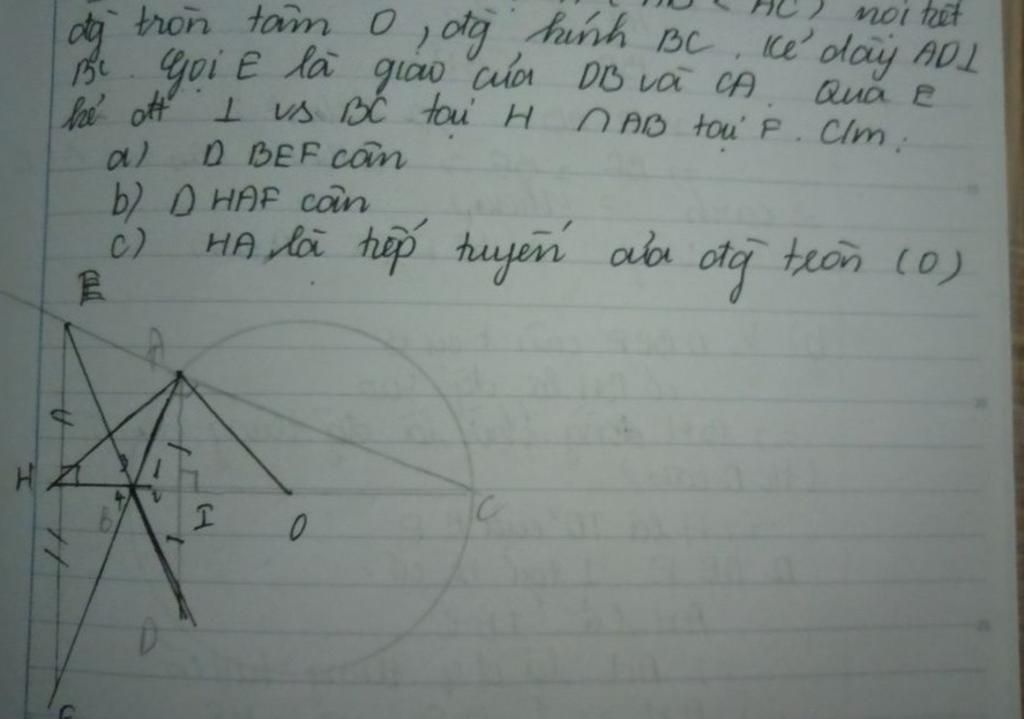 (AB < AC) nối tiết
đg̀ tròn tâm O, đg̀ kính BC. Kẻ dây AD⊥
BC. Gọi E là giao của DB và CA. Qua E
kẻ đt ⊥ vs BC tại H ∩ AB tại F. C/m:
a) Δ BEF cân
b) Δ HAF cân
c) HA là tiếp tuyến của đg̀ tròn (O)
E
A
H 3 1
4 2 C
B I O
D
F